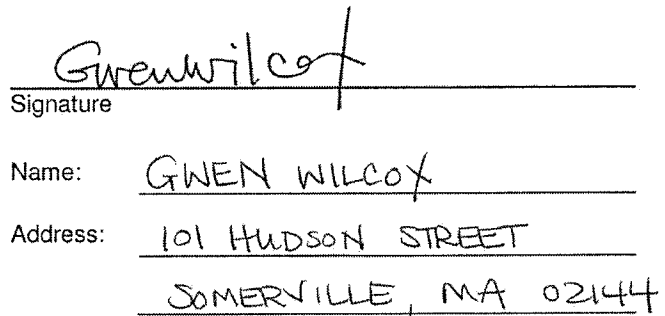 Gwen Wilcox
Signature
Name: GWEN WILCOX
Address: 101 HUDSON STREET
SOMERVILLE, MA 02144